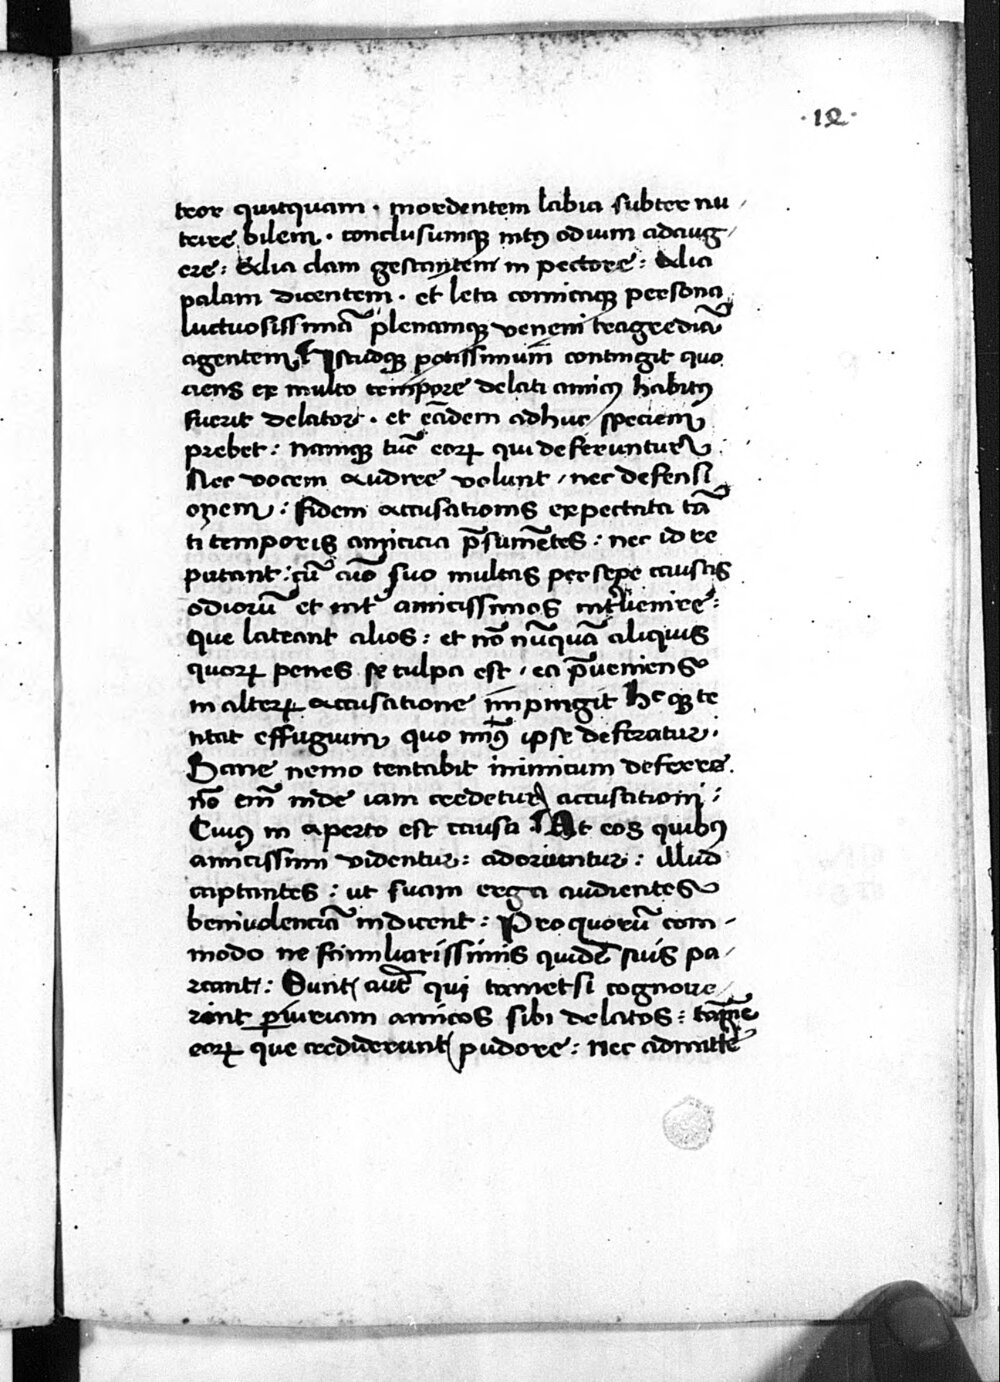 ·12·
teor quitquam · mordentem labia subter nu
trire bilem · conclusumq intꝰ odium adaug
ere : Alia clam gestantem in pectore : Alia
palam dicentem · et leta comicaq persona
luctuosissimā plenamq veneni tragediā
agentem Istudq potissimum contingit quo
ciens ex multo tempore delati amicꝰ habitꝰ
fuerit delator · et eādem adhuc speciem
prebet : Namq tūc eoꝝ qui deferuntur
Nec vocem audire volunt / nec defensi
onem : fidem accusationis expectata tā
ti temporis amicicia p̄sumētes : nec id re
putant : cū suo multas persepe causas
odiorū et int̄ amicissimos int̄uenire :
que lateant alios : et nō nūquā aliquis
quoꝝ penes se culpa est / ea p̄ueniens
in alteꝝ accusatione impingit hec q te
ntat effugium quo minꝰ ipse deferatur ·
Sane nemo tentabit inimicum deferre ·
nō em̄ inde iam credetur accusationi :
Cuiꝰ in aperto est causa At eos quibꝰ
amicissimi videntur : adoriuntur : illud
captantes : ut suam erga audientes
beniuolenciā indicent : Pro quorū com
modo ne familiarissimis quidē suis pa
rcant : Sunt aut̄ qui tametsi cognoue
rint ꝑiniuriam amicos sibi delatos : tam̄
eoꝝ que crediderunt pudore : nec admitte